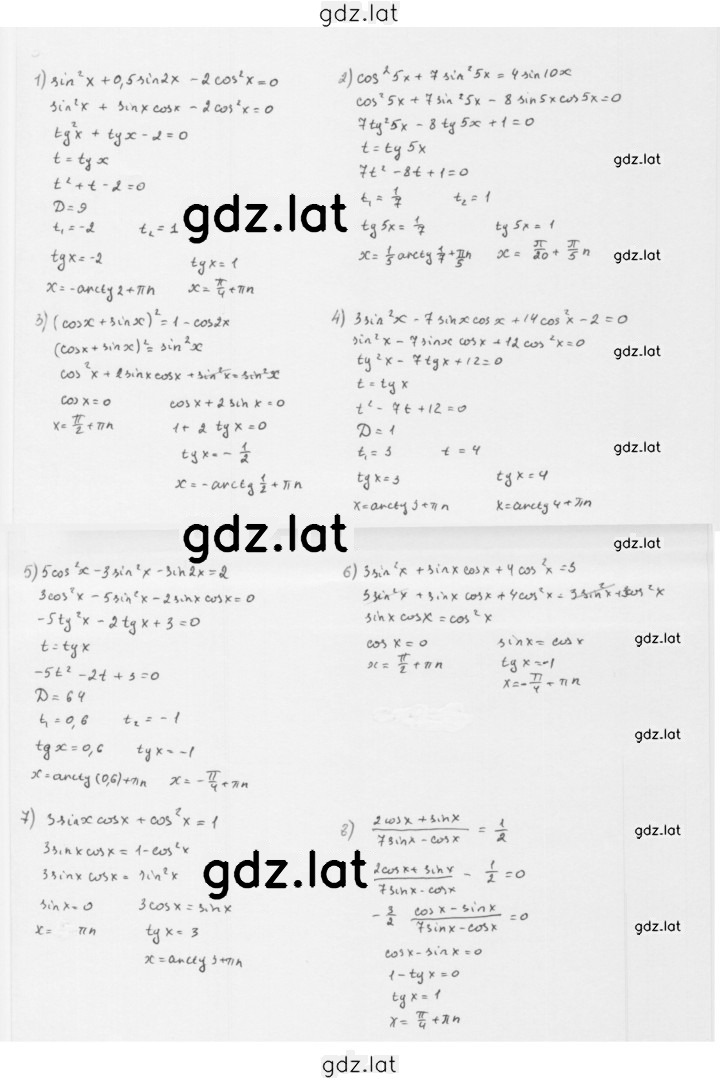 gdz.lat
1) sin²x + 0,5 sin2x - 2cos²x = 0
sin²x + sinx cosx - 2cos²x = 0
tg²x + tgx - 2 = 0
t = tg x
t² + t - 2 = 0
D = 9
t₁ = -2 t₂ = 1
tgx = -2 tgx = 1
x = -arctg 2 + πn x = π/4 + πn
2) cos²5x + 7 sin²5x = 4 sin10x
cos²5x + 7 sin²5x - 8 sin5x cos5x = 0
7tg²5x - 8 tg5x + 1 = 0
t = tg 5x
7t² - 8t + 1 = 0
t₁ = 1/7 t₂ = 1
tg5x = 1/7 tg5x = 1
x = 1/5 arctg 1/7 + πn/5 x = π/20 + π/5 n
gdz.lat
gdz.lat
gdz.lat
3) (cosx + sinx)² = 1 - cos2x
(cosx + sinx)² = sin²x
cos²x + 2sinxcosx + sin²x = sin²x
cosx = 0 cosx + 2 sinx = 0
x = π/2 + πn 1 + 2 tgx = 0
tgx = - 1/2
x = -arctg 1/2 + πn
4) 3sin²x - 7sinxcosx + 14cos²x - 2 = 0
sin²x - 7sinx cosx + 12cos²x = 0
tg²x - 7tgx + 12 = 0
t = tg x
t² - 7t + 12 = 0
D = 1
t₁ = 3 t = 4
tgx = 3 tgx = 4
x = arctg 3 + πn x = arctg 4 + πn
gdz.lat
gdz.lat
gdz.lat
gdz.lat
5) 5cos²x - 3sin²x - sin2x = 2
3cos²x - 5sin²x - 2sinxcosx = 0
-5tg²x - 2tgx + 3 = 0
t = tgx
-5t² - 2t + 3 = 0
D = 64
t₁ = 0,6 t₂ = -1
tgx = 0,6 tgx = -1
x = arctg(0,6) + πn x = - π/4 + πn
6) 3sin²x + sinx cosx + 4cos²x = 3
3sin²x + sinx cosx + 4cos²x = 3sin²x + 3cos²x
sinx cosx = cos²x
cosx = 0 sinx = cosx
x = π/2 + πn tgx = -1
x = - π/4 + πn
gdz.lat
gdz.lat
7) 3sinxcosx + cos²x = 1
3sinxcosx = 1 - cos²x
3sinx cosx = sin²x
sinx = 0 3cosx = sinx
x = πn tgx = 3
x = arctg 3 + πn
gdz.lat
8) (2cosx + sinx)/(7sinx - cosx) = 1/2
(2cosx + sinx)/(7sinx - cosx) - 1/2 = 0
- 3/2 (cosx - sinx)/(7sinx - cosx) = 0
cosx - sinx = 0
1 - tgx = 0
tgx = 1
x = π/4 + πn
gdz.lat
gdz.lat
gdz.lat